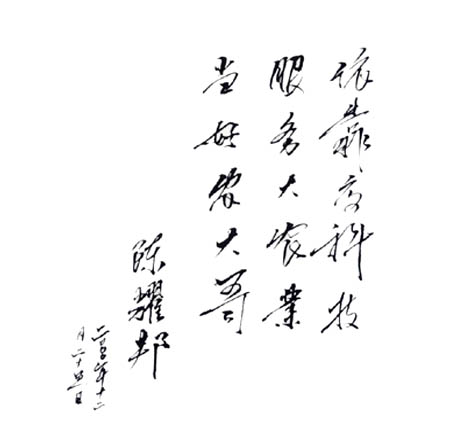 依靠高科技
服务大农业
当好农大哥
陈耀邦
年十二
月二十日